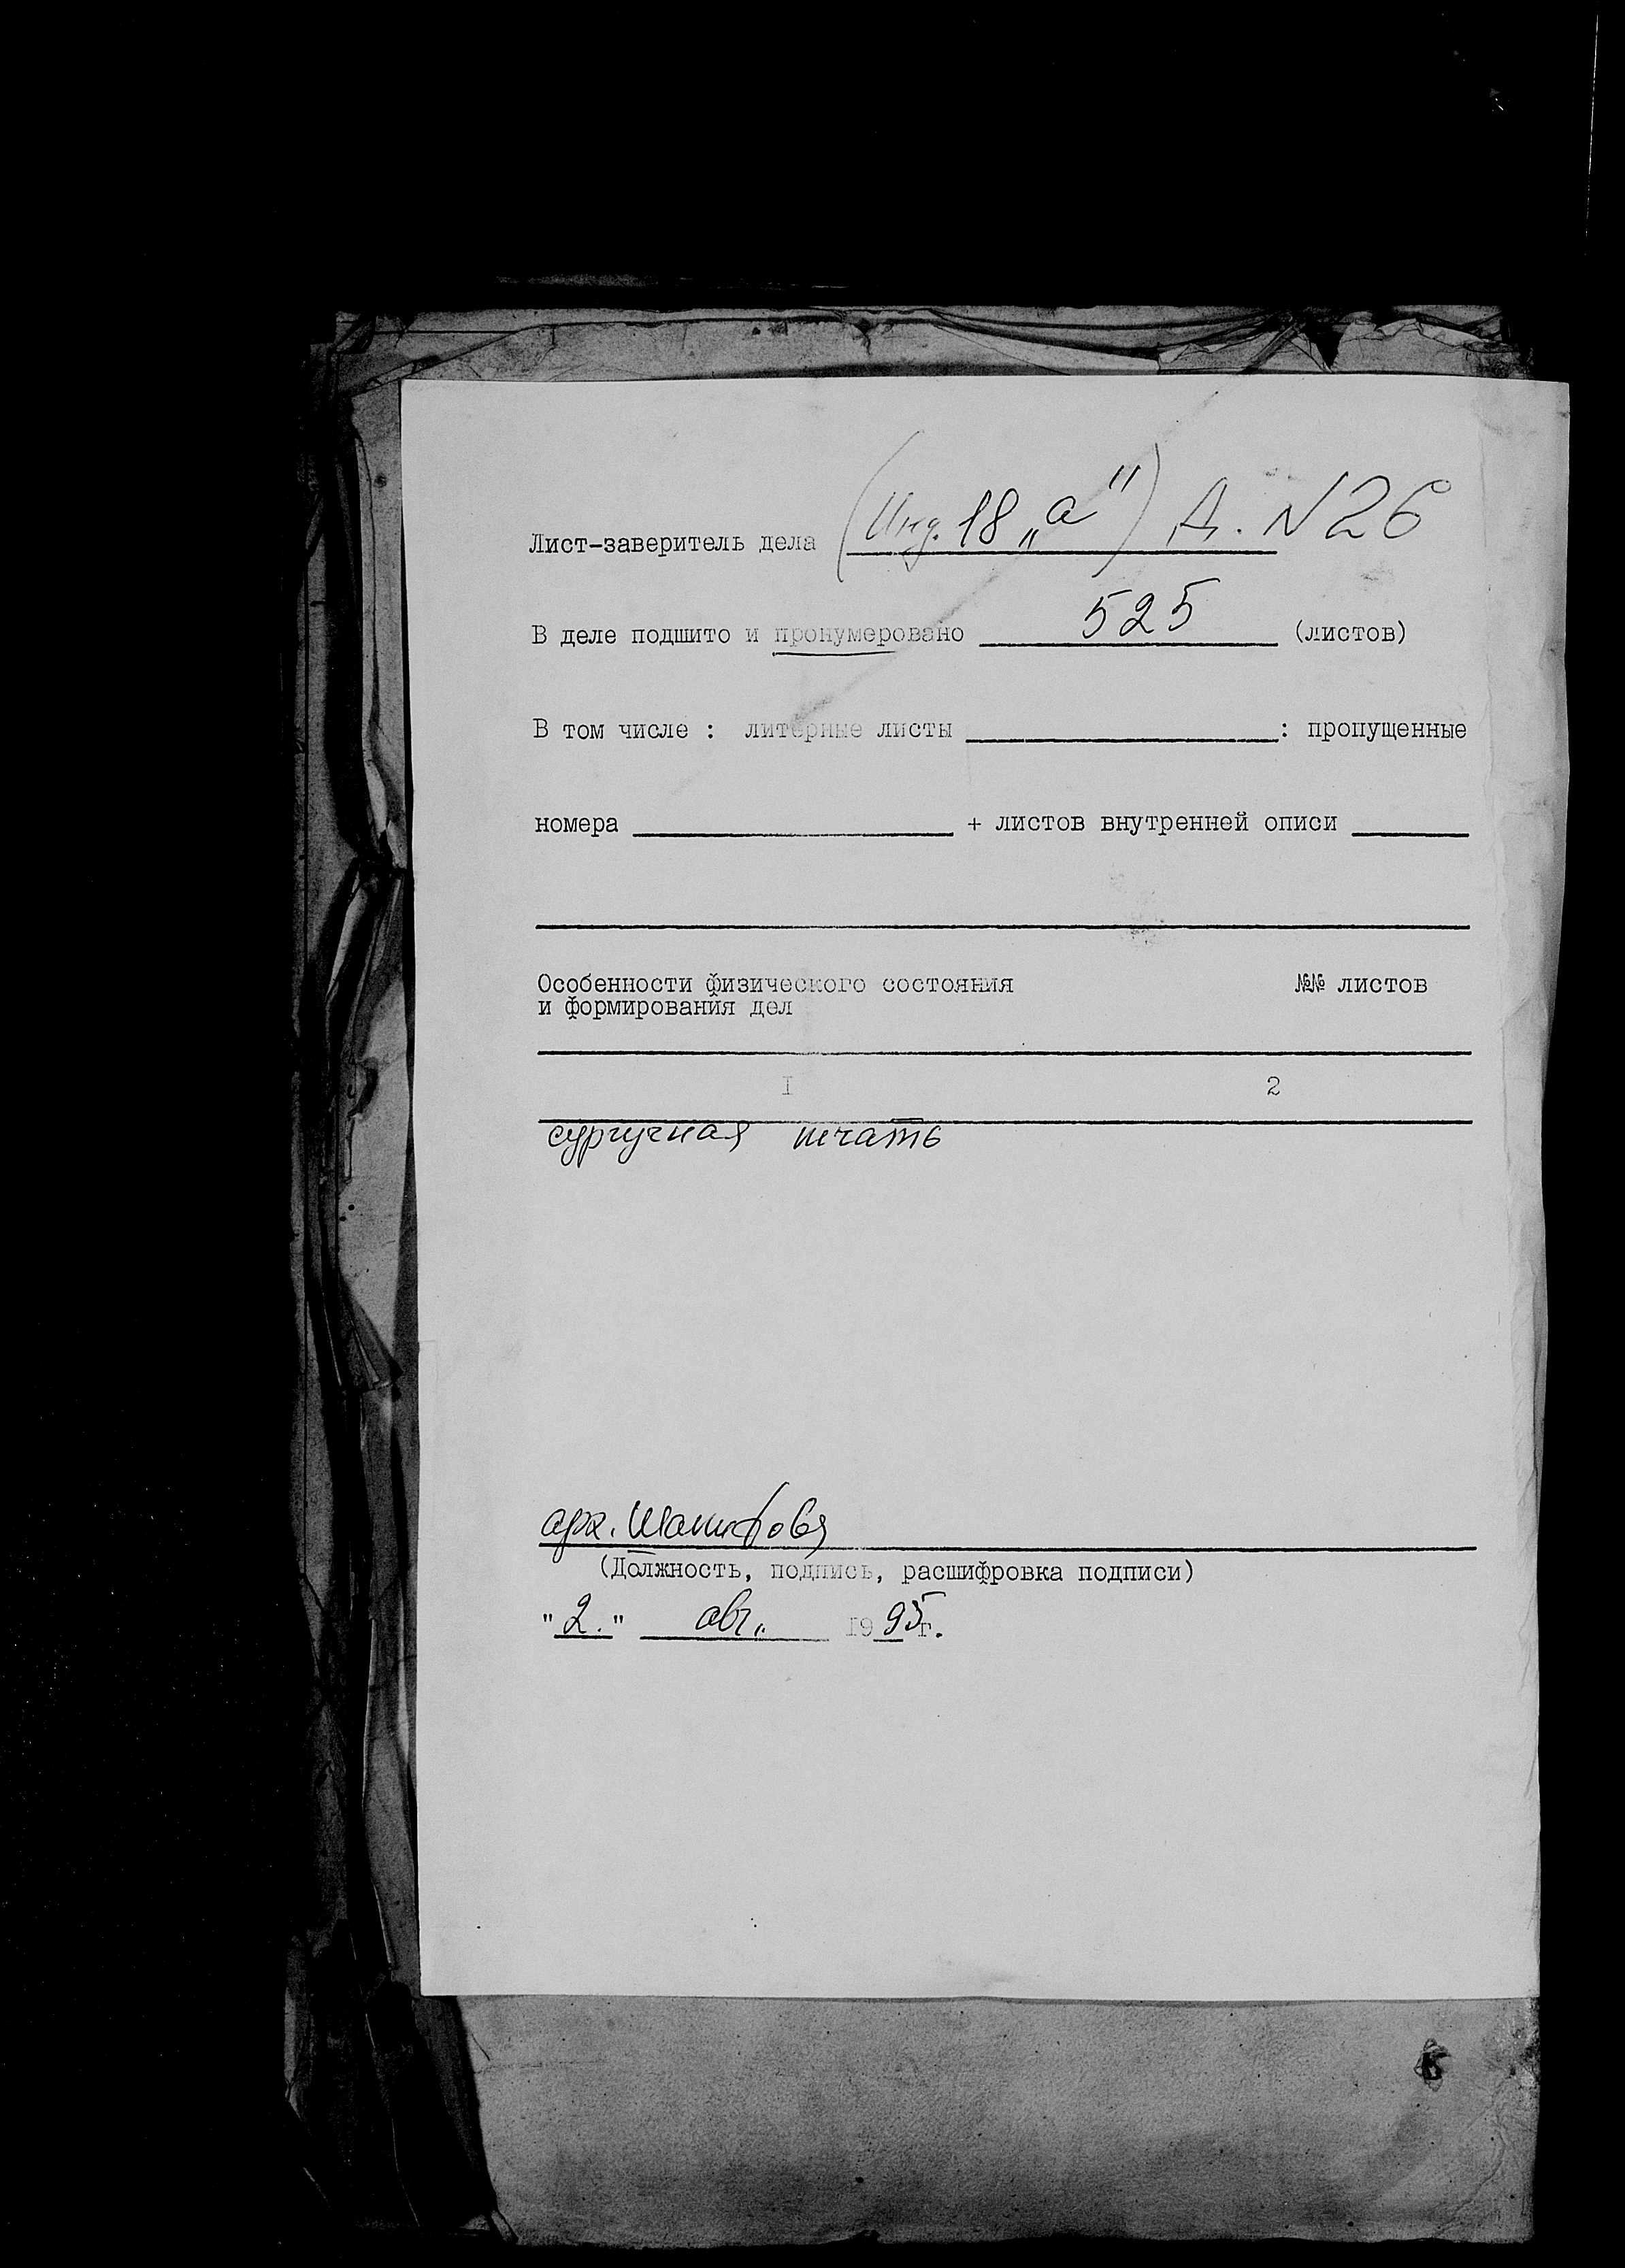 Лист-заверитель дела (Инд. 18 „а") Д. N 26
В деле подшито и пронумеровано 525 (листов)
В том числе : литерные листы : пропущенные
номера + листов внутренней описи
Особенности физического состояния №№ листов
и формирования дел
I 2
сургучная печать
арх.
(Должность, подпись, расшифровка подписи)
"2." авг. 1995г.